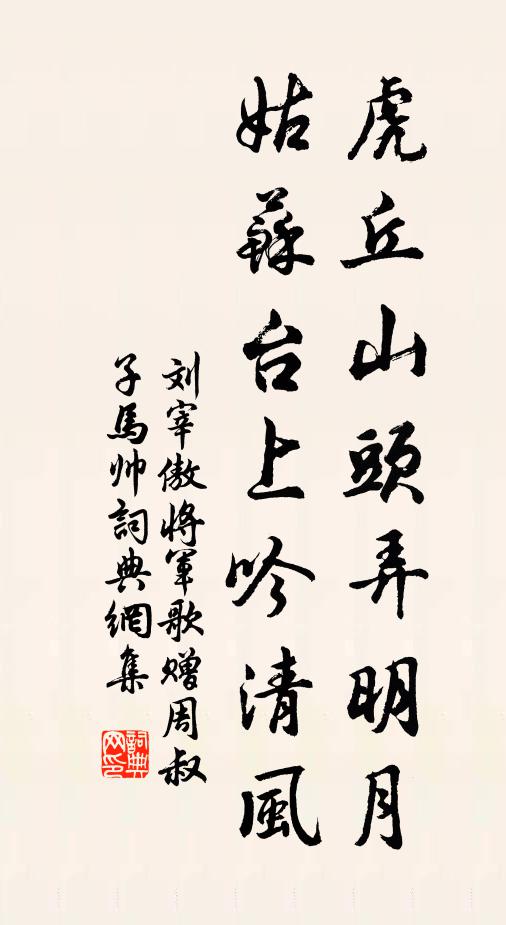 虎丘山頭弄明月
姑蘇台上吟清風
刘宰傲將軍歌赠周叔
子馬帅詞典網集
詞典
网印